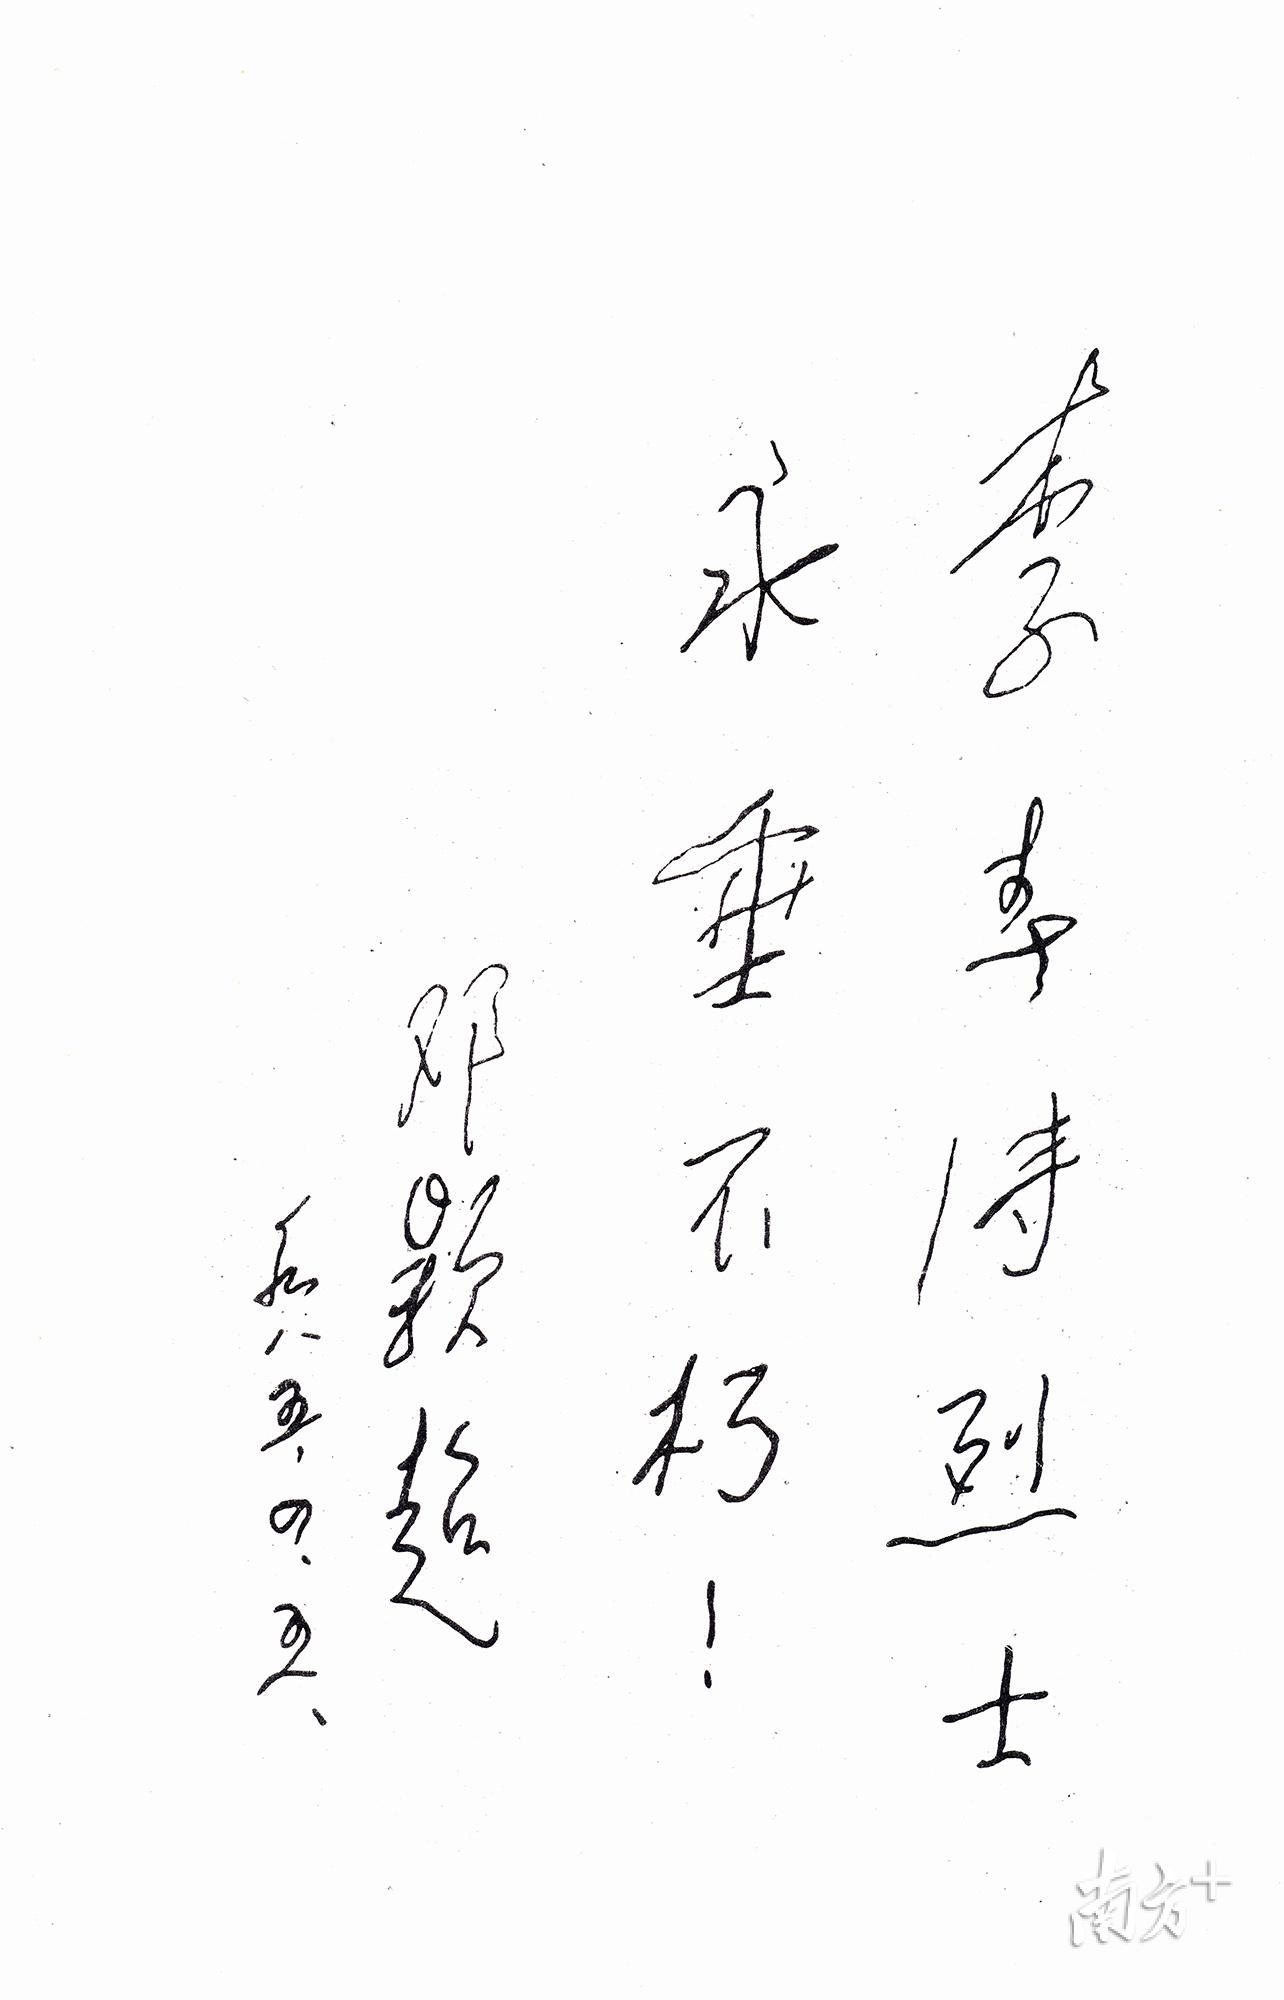 李春涛烈士
永垂不朽！
邓颖超
一九八五、四、五、
南方+